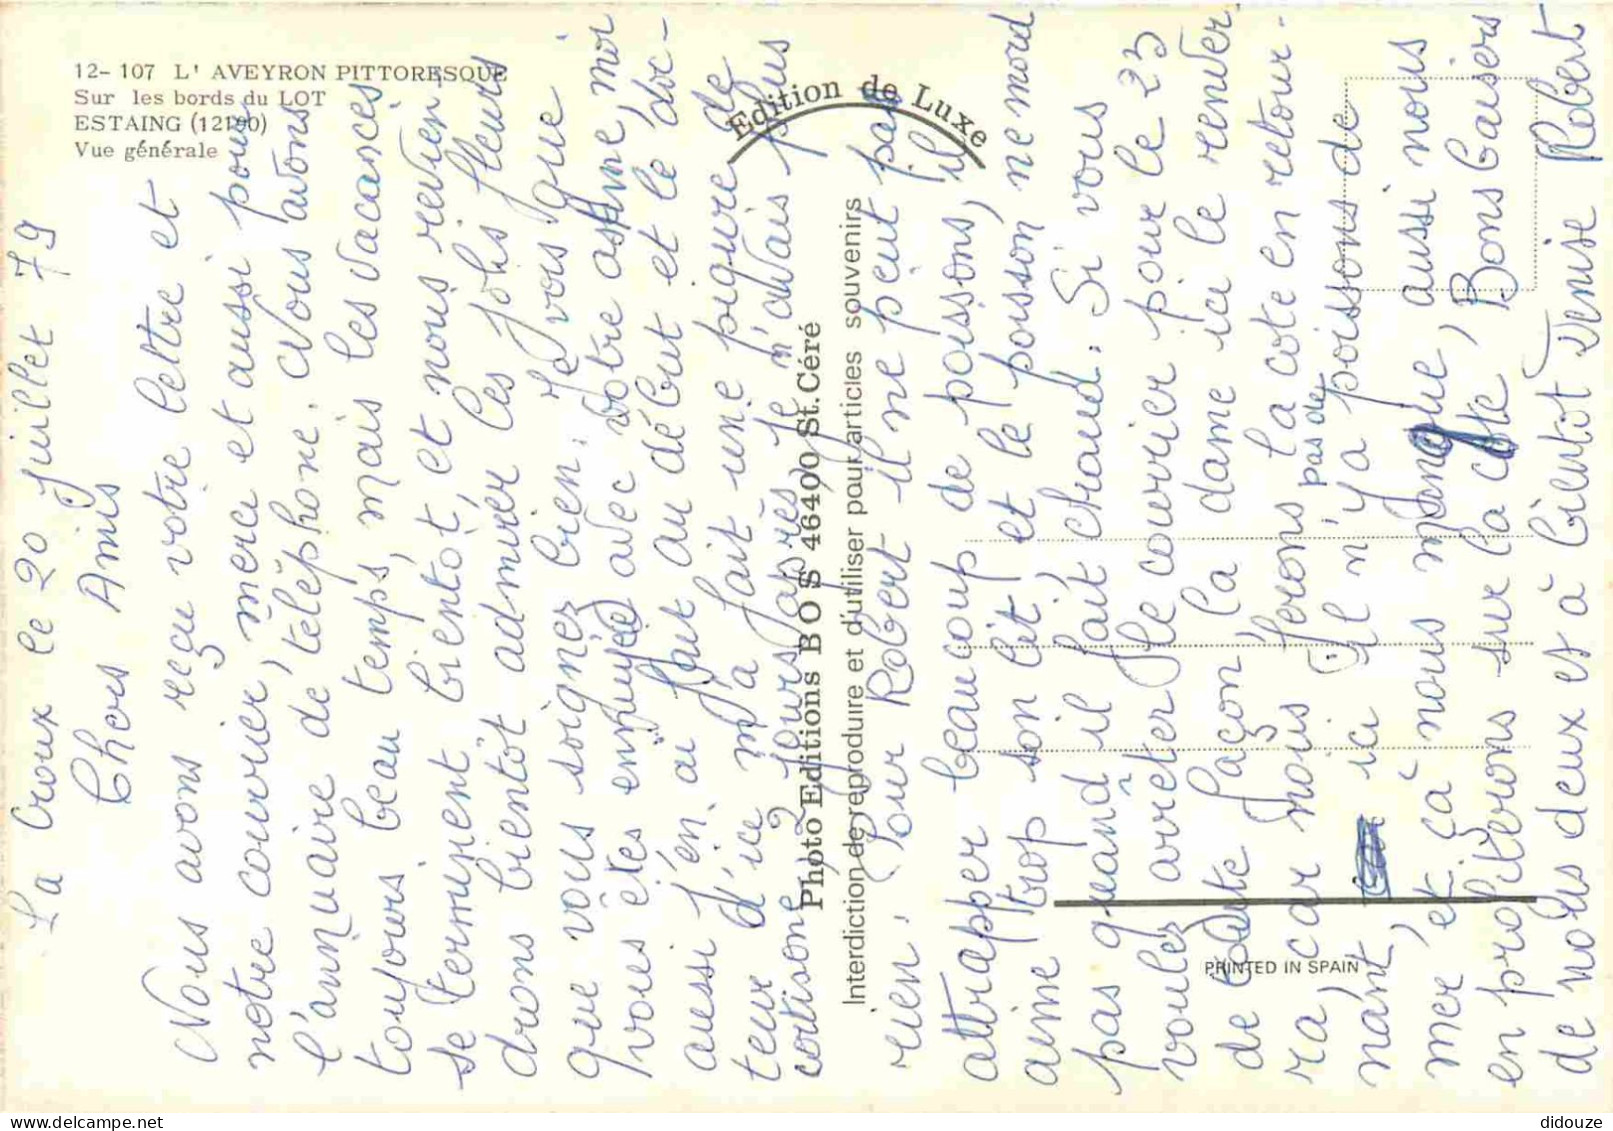 12- 107 L' AVEYRON PITTORESQUE
Sur les bords du LOT
ESTAING (12190)
Vue générale
Edition de Luxe
Photo Editions BOS 46400 St. Céré
Interdiction de reproduire et d'utiliser pour articles souvenirs
PRINTED IN SPAIN
La Croix le 20 juillet 79
Chers Amis
Nous avons reçu votre lettre et
notre courrier, merci et aussi pour
l'annuaire de téléphone. Nous avons
toujours beau temps, mais les vacances
se terminent bientôt, et nous revien-
drons bientôt admirer les jolis fleurs
que vous soignez bien. Je vois que
vous êtes ennuyée avec votre asthme, moi
aussi j'en ai fait au début et le doc-
teur d'ice m'a fait une piqure de
cortisone, 2 jours après je n'avais plus
rien. (Pour Robert il ne peut pas
attrapper beaucoup de poissons, il
aime trop son lit, et le poisson, ne mord
pas quand il fait chaud. Si vous
voulez arreter le courrier pour le 23
de toute façon, la dame ici le renver
ra, car nous ferons la cote en retour-
nant, ici il n'y a pas de poissons de
mer et ça nous manque, aussi nous
en profiterons sur la cote, Bons baisers
de nous deux et à bientot Denise Robert
didouze